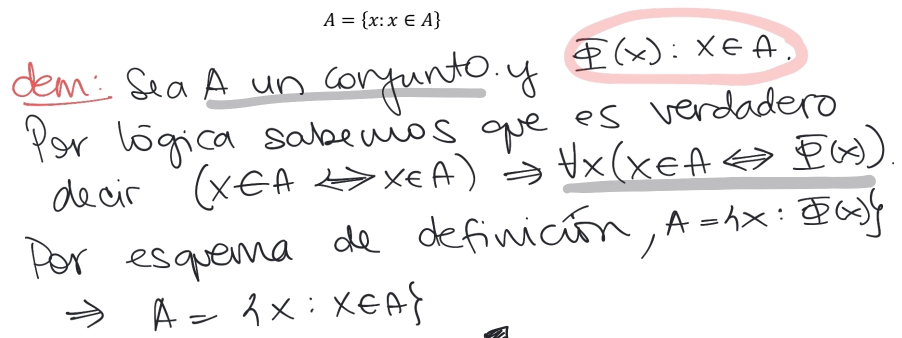 A = {x: x ∈ A}
dem: Sea A un conjunto. y Φ(x) : x ∈ A.
Por lógica sabemos que es verdadero
decir (x ∈ A ⇔ x ∈ A) ⇒ ∀x(x ∈ A ⇔ Φ(x)).
Por esquema de definición, A = {x : Φ(x)}
⇒ A = {x : x ∈ A}